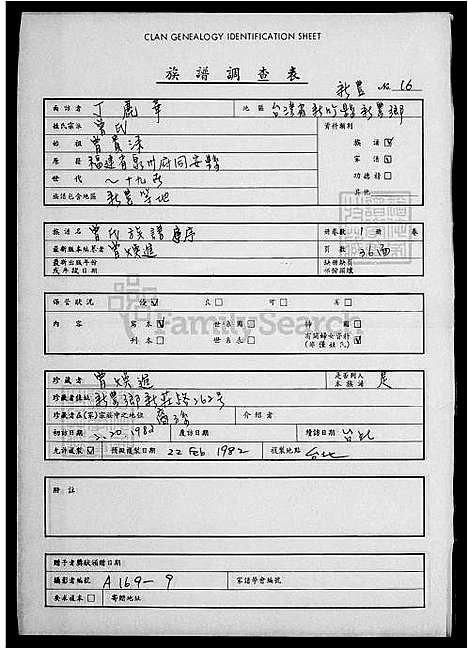 CLAN GENEALOGY IDENTIFICATION SHEET
族譜調查表
新豊 No 16
面訪者 丁鳳華 地區 台灣省新竹縣新豊鄉
姓氏宗派 曾氏 資料類別
始祖 曾貢 族譜☑
原籍 福建省泉州府同安縣 家譜☑
世代 ～十九世 功德榜☐
族譜包含地區 新豊等地 其他
族譜名 曾氏族譜 冊卷數 1 冊 卷
最新版本編纂者 曾煥進 頁數 36面
最新出版年份
或年限日期
保管狀況 優☑ 良☐ 可☐ 劣☐
內容 寫本☑ 世系圖☐ 神圖☐
刊本☐ 世系表☐
FamilySearch
珍藏者 曾煥進 是否列入本族譜 是
珍藏者住址 新豊鄉新莊路262号
珍藏者在(家)宗族中之地位 裔孫 介紹者
初訪日期 2.20.1982 復訪日期 續訪日期 台北
允許複製☑ 預擬複製日期 22 Feb 1982 複製地點 台北
附註
贈予者獎狀頒贈日期
攝影者編號 A169-9 家譜學會編號
要求複本☐ 寄贈地址